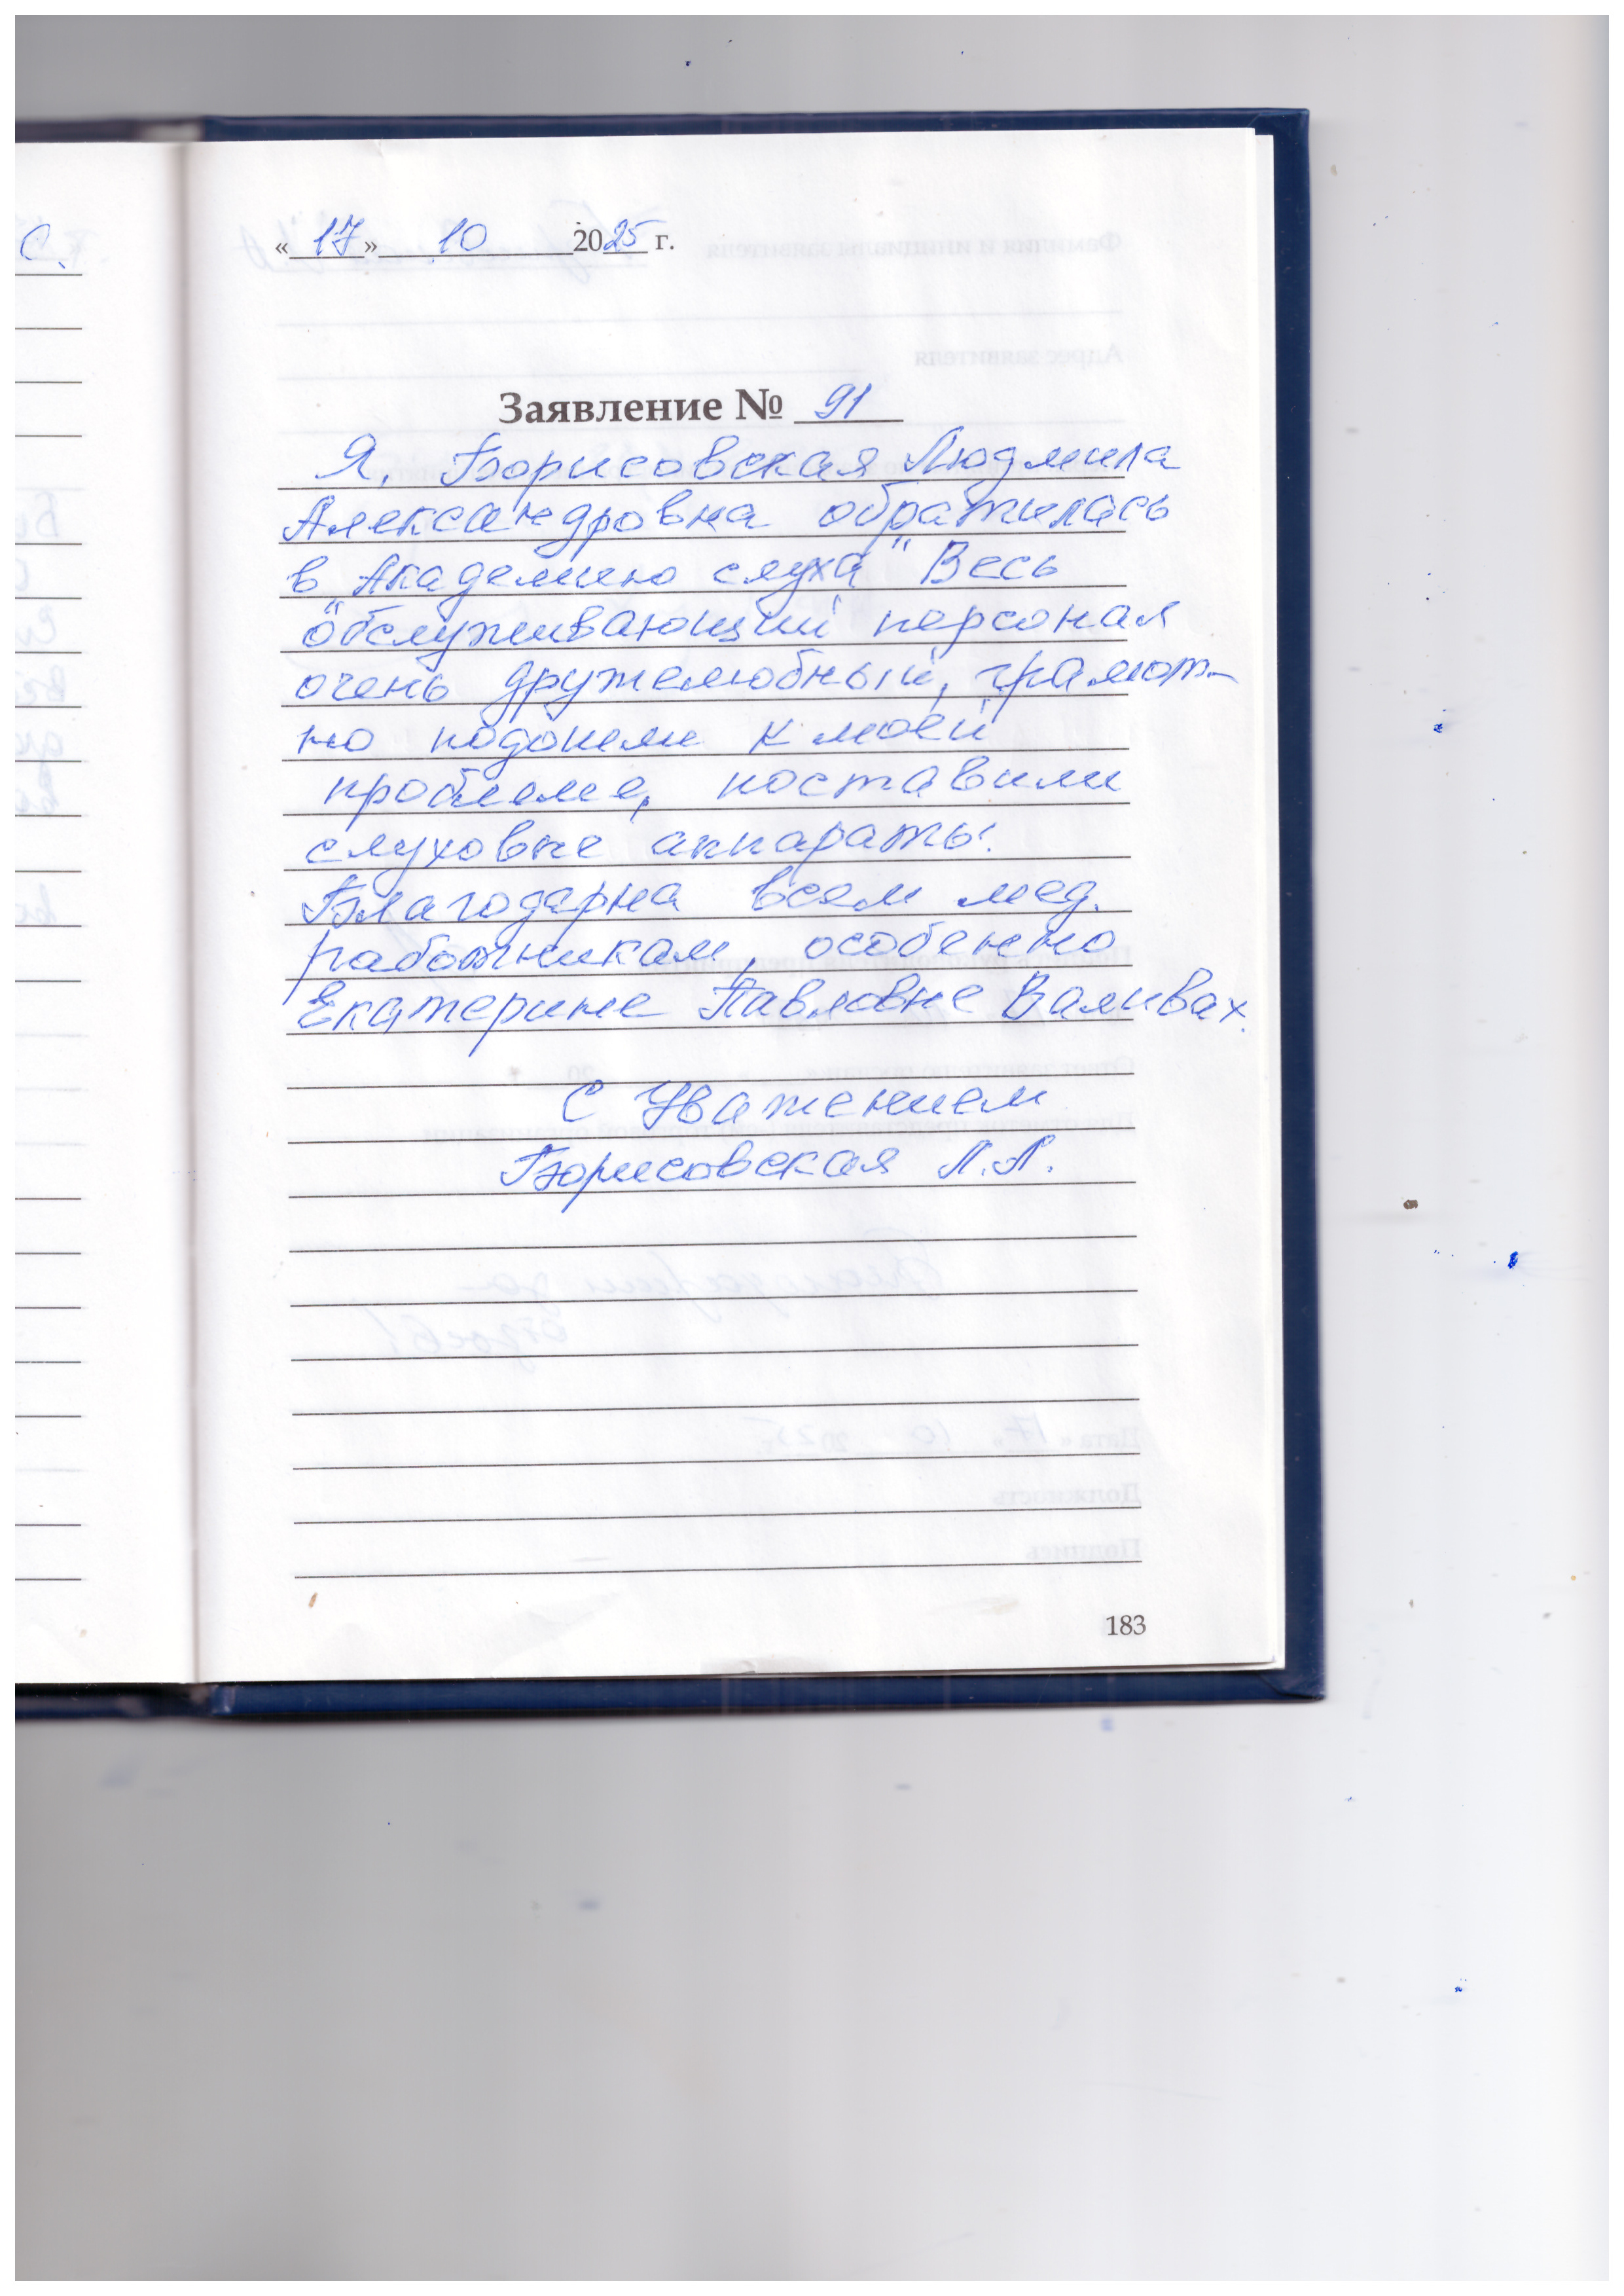 «17» 10 2025 г.
Заявление № 91
Я, Борисовская Людмила
Александровна обратилась
в „Академию слуха" Весь
обслуживающий персонал
очень дружелюбный, грамот-
но подошли к моей
проблеме, поставили
слуховые аппараты.
Благодарна всем мед.
работникам, особенно
Екатерине Павловне Валивах.
С Уважением
Борисовская Л.А.
183